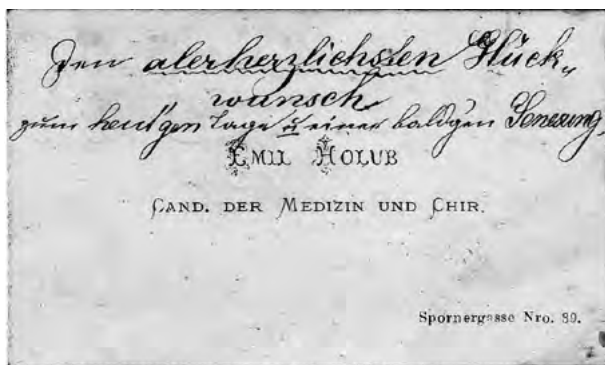 Den alerherzlichsten Glück„
wunsch
zum heut'gen Tage u einer baldgen Genesung.
EMIL HOLUB
CAND. DER MEDIZIN UND CHIR.
Spornergasse Nro. 89.